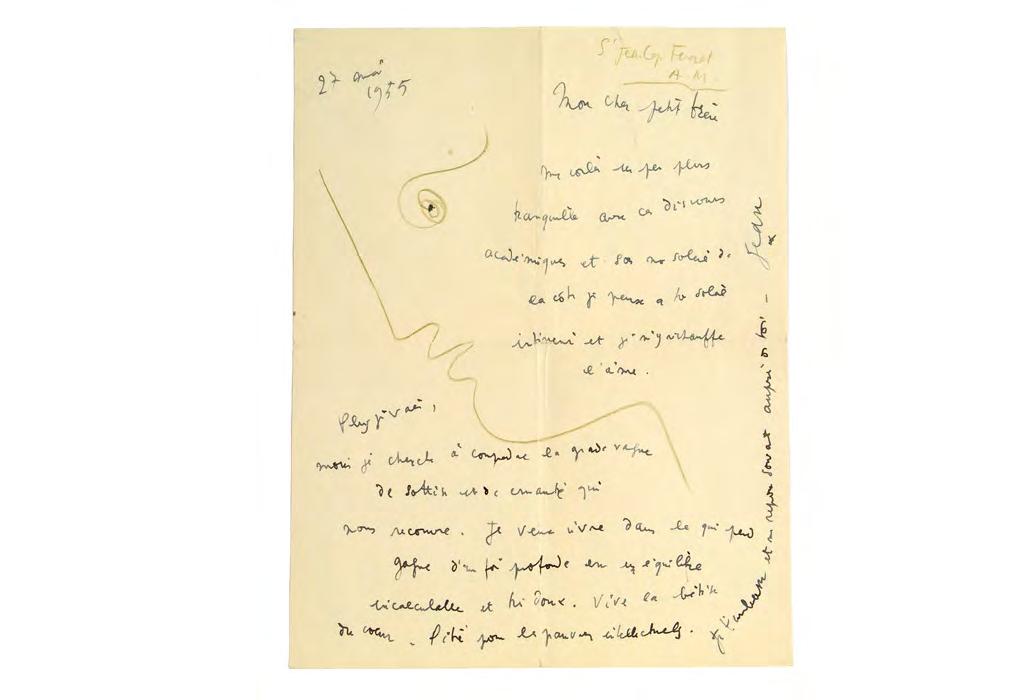 27 mai
1955
St Jean Cap Ferrat
A.M.
Mon cher petit frère
me voilà un peu plus
tranquille avec ces discours
académiques et sous no soleil de
la côte je pense a to soleil
intérieur et je m'y réchauffe
l'âme.
Plus je vais,
moins je cherche à comprendre la grande vague
de sottise et de cruauté qui
nous recouvre. Je veux vivre dans le qui perd
gagne d'une foi profonde en un équilibre
incalculable et très doux. Vive la bêtise
du cœur. Pitié pour les pauvres intellectuels.
Je t'embrasse et me repose souvent auprès de toi -
Jean